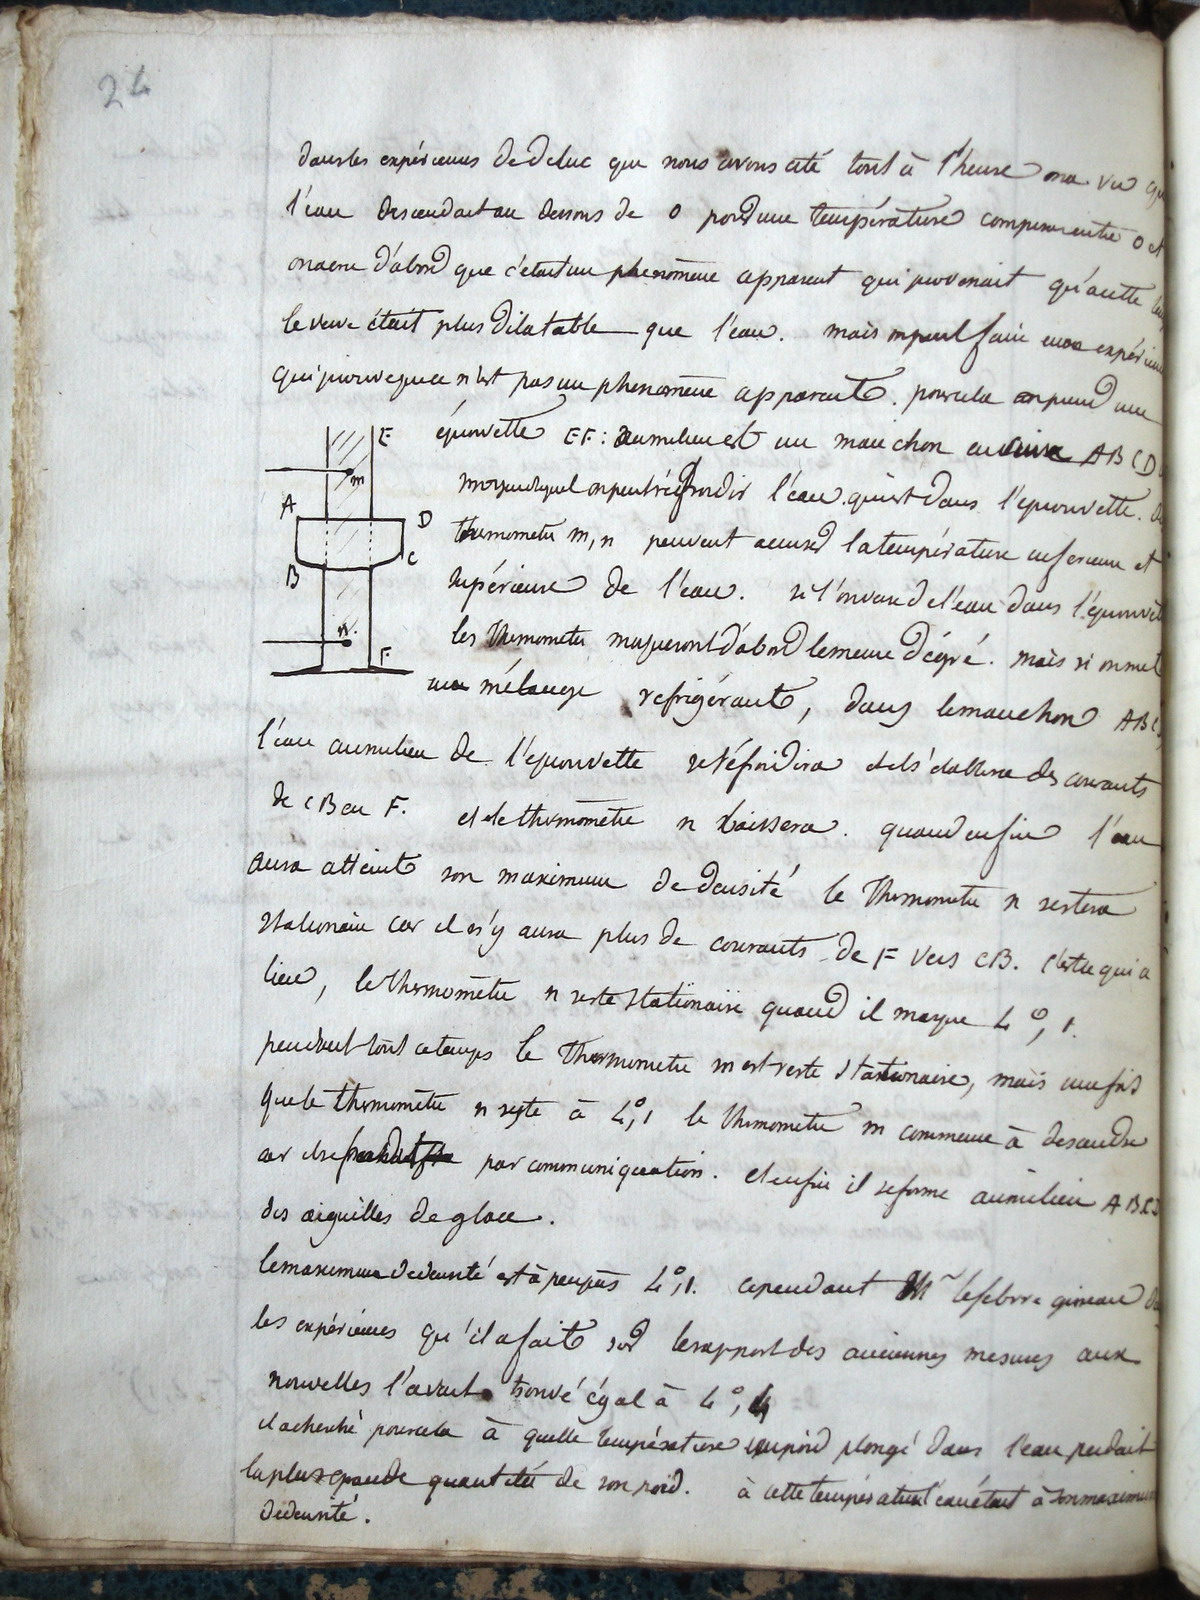 24
dans les expériences de deluc que nous avons cité tout à l'heure on a vu que
l'eau descendait au dessous de 0 pour une température comprise entre 0 et
on a cru d'abord que c'était un phenomène apparent qui provenait qu'à cette
le verre était plus dilatable que l'eau. mais on peut faire une expérience
qui prouve que ce n'est pas un phenomène apparent. pour cela on prend une
éprouvette EF: au milieu est un manchon en cuivre ABCD
moyen duquel on peut réfroidir l'eau qui est dans l'éprouvette.
thermometre m, n peuvent accuser la température inferieure et
supérieure de l'eau. si l'on verse de l'eau dans l'éprouvette
les thermometre marqueront d'abord le meme dégré. mais si on met
un mélange refrigérant, dans le manchon ABCD
l'eau au milieu de l'éprouvette se réfroidira et il s'établira des courants
de CB en F. et le thermomètre n baissera. quand enfin l'eau
aura atteint son maximum de densité le thermometre n restera
stationaire car il n'y aura plus de courants de F vers CB. c'est ce qui a
lieu, le thermomètre n reste stationaire quand il marque 4°,1.
pendant tout ce temps le thermometre m est resté stationaire, mais une fois
que le thermomètre n reste à 4°,1 le thermometre m commence à descendre
car il se par communication. et enfin il se forme au milieu ABCD
des aiguilles de glace.
le maximum de densité est à peu près 4°,1. cependant Mr lefebvre gineau
les expériences qu'il a fait sur le rapport des anciennes mesures aux
nouvelles l'avait trouvé égal à 4°,4
il a cherché pour cela à quelle température un poid plongé dans l'eau perdait
la plus grande quantité de son poid. à cette température l'eau était à son maximum
de densité.
E
m
A
D
C
B
n
F